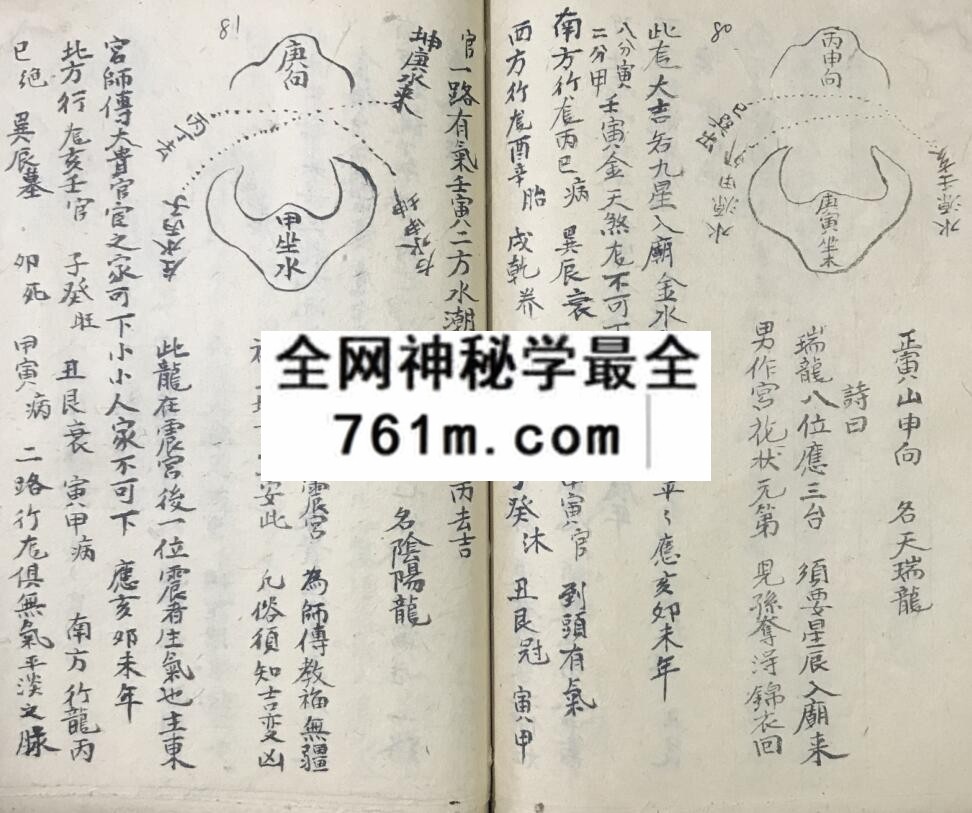 80
丙申向
庚寅坐木
水源壬亥
正寅山申向 名天瑞龍
詩曰
瑞龍八位應三台 須要星辰入廟來
男作宮花狀元第 兒孫奪得錦衣回
此龙大吉若九星入廟金水
平々應亥卯未年
八分寅
二分甲
壬寅金天煞龙不可下
南方行龙丙巳病 巽辰衰
寅官 到頭有氣
西方行龙酉辛胎 戌乾养
癸沐 丑艮冠 寅甲
官一路有氣壬寅二方水潮
丙去吉
81
庚向
甲坐水
坤庚水來
丙丁去
名陰陽龍
震宮 為師傅教福無疆
安此 凡俗須知吉变凶
此龍在震宮後一位震者生氣也主東
宮師傅大貴官宦之家可下小小人家不可下 應亥卯未年
北方行龙亥壬官 子癸旺 丑艮衰 寅甲病 南方行龍丙
巳绝 巽辰墓 卯死 甲寅病 二路行龙俱無氣平淡之脉
全网神秘学最全
761m.com